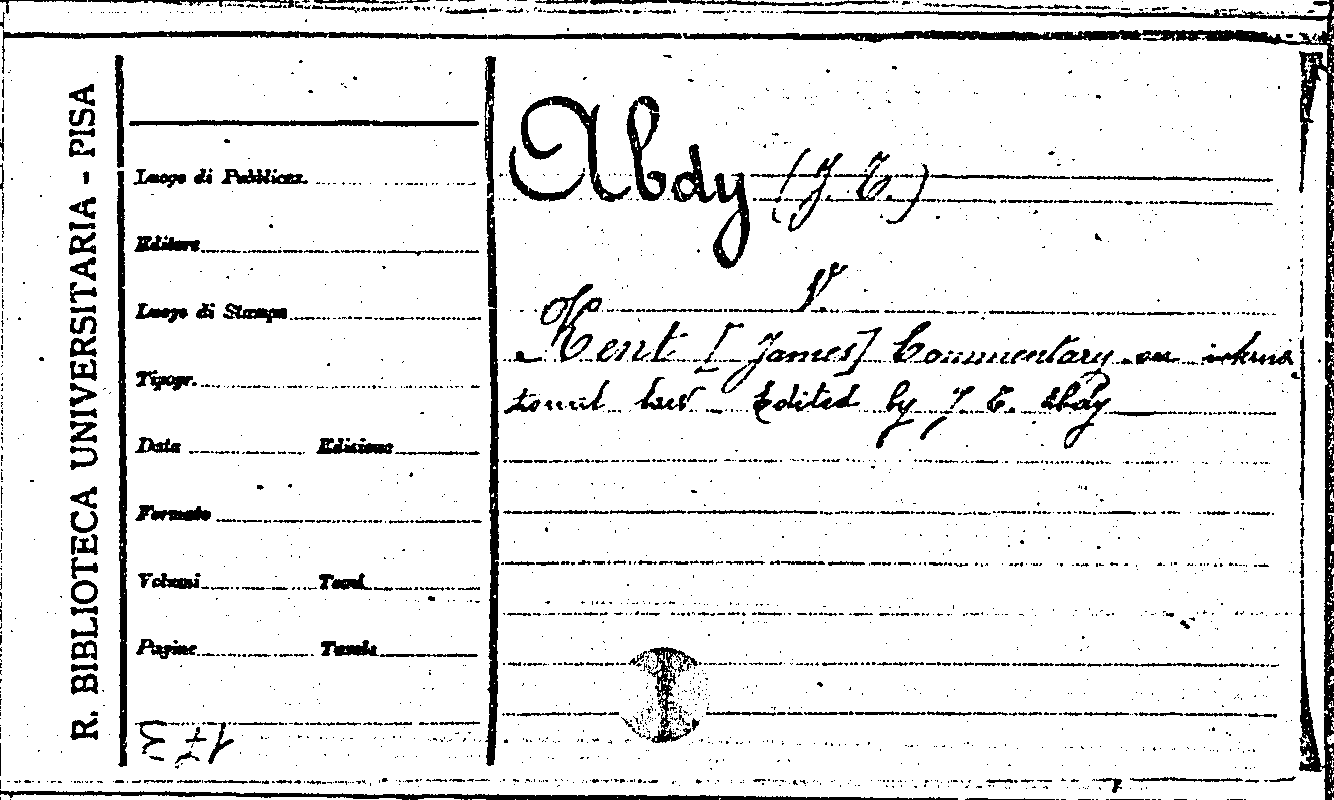 R. BIBLIOTECA UNIVERSITARIA - PISA
Luogo di Pubblicaz.
Editore
Luogo di Stampa
Tipogr.
Data Edizione
Formato
Volumi Tomi
Pagine Tavole
Abdy (J. T.)
V.
Kent [James] Commentary on interna
tional law Edited by J. T. Abdy